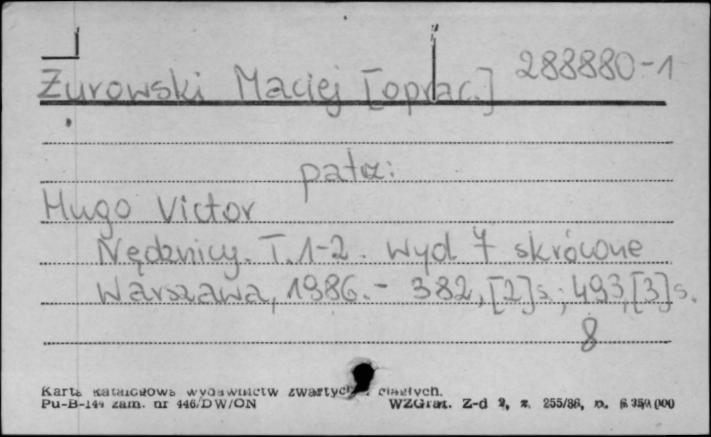 Żurowski Maciej [oprac.] 288880-1
patrz:
Hugo Victor
Nędznicy. T. 1-2. Wyd 7 skrócone
Warszawa, 1986. - 382, [2] s.; 493, [3] s.
8
Karta katalogowa wydawnictw zwartych i ciągłych.
Pu-B-144 zam. nr 446/DW/ON WZGraf. Z-d 2, z. 255/86, n.